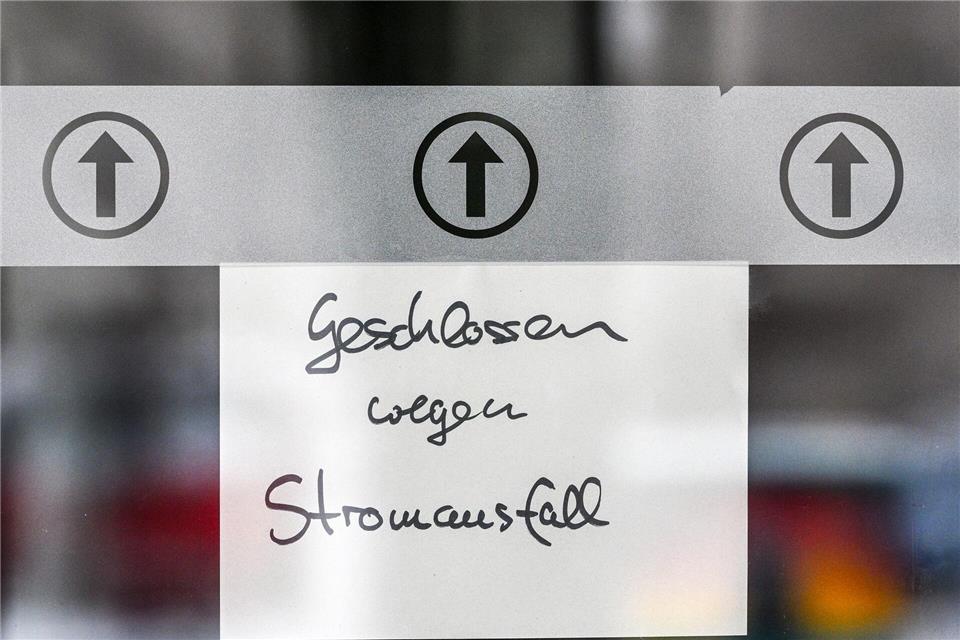 Geschlossen
wegen
Stromausfall